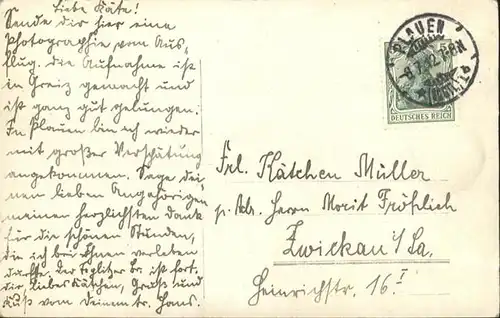 Liebe Käte!
Sende dir hier eine
Photographie vom Aus-
flug. die Aufnahme ist
in Greiz gemacht und
ist ganz gut gelungen.
In Plauen bin ich wieder
mit großer Verspätung
angekommen. Sage dei-
nen lieben Angehörigen
meinen herzlichsten dank
für die schönen Stunden,
die ich bei Ihnen verleben
durfte. der ist fort.
dir, liebes Kätchen, Gruß und
Kuß vom deinem tr. Hans.
PLAUEN
(VOGTL.)
DEUTSCHES REICH
Frl. Kätchen Müller
p. Adr. Herrn Morit Fröhlich
Zwickau i/Sa.
Heinrichstr. 16 I